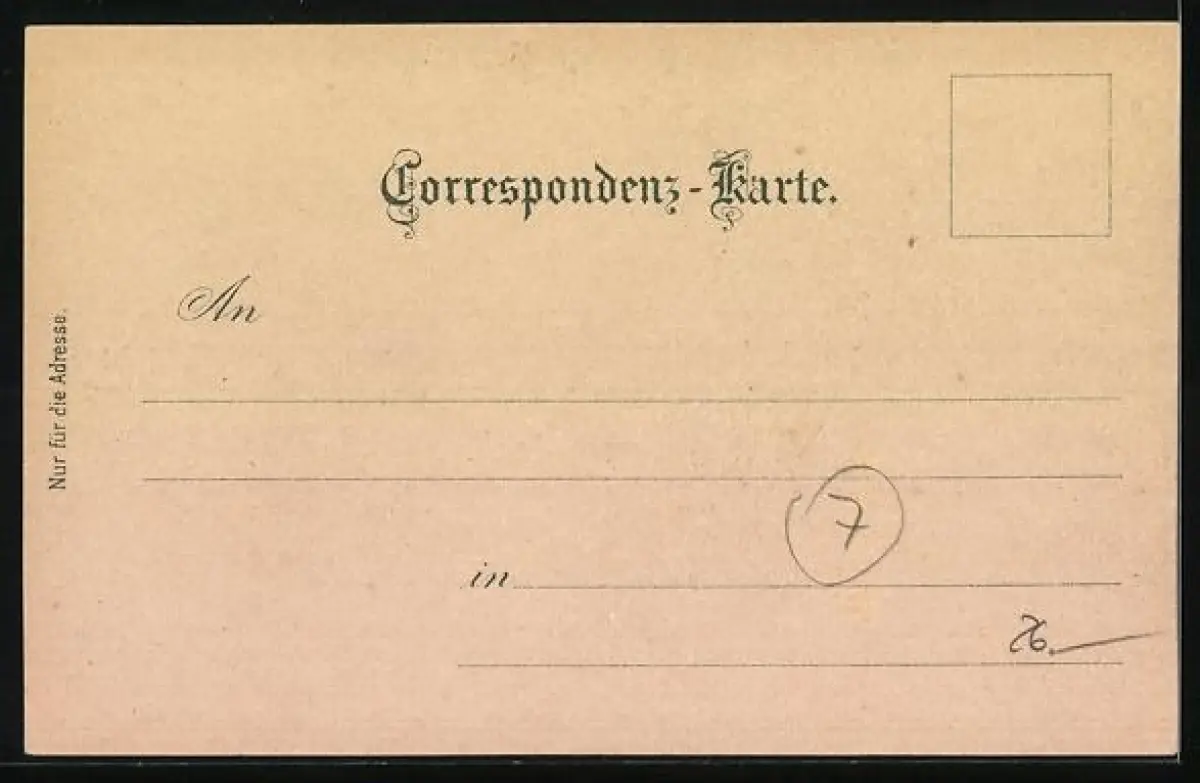 Correspondenz-Karte.
An
Nur für die Adresse.
7
in
26.